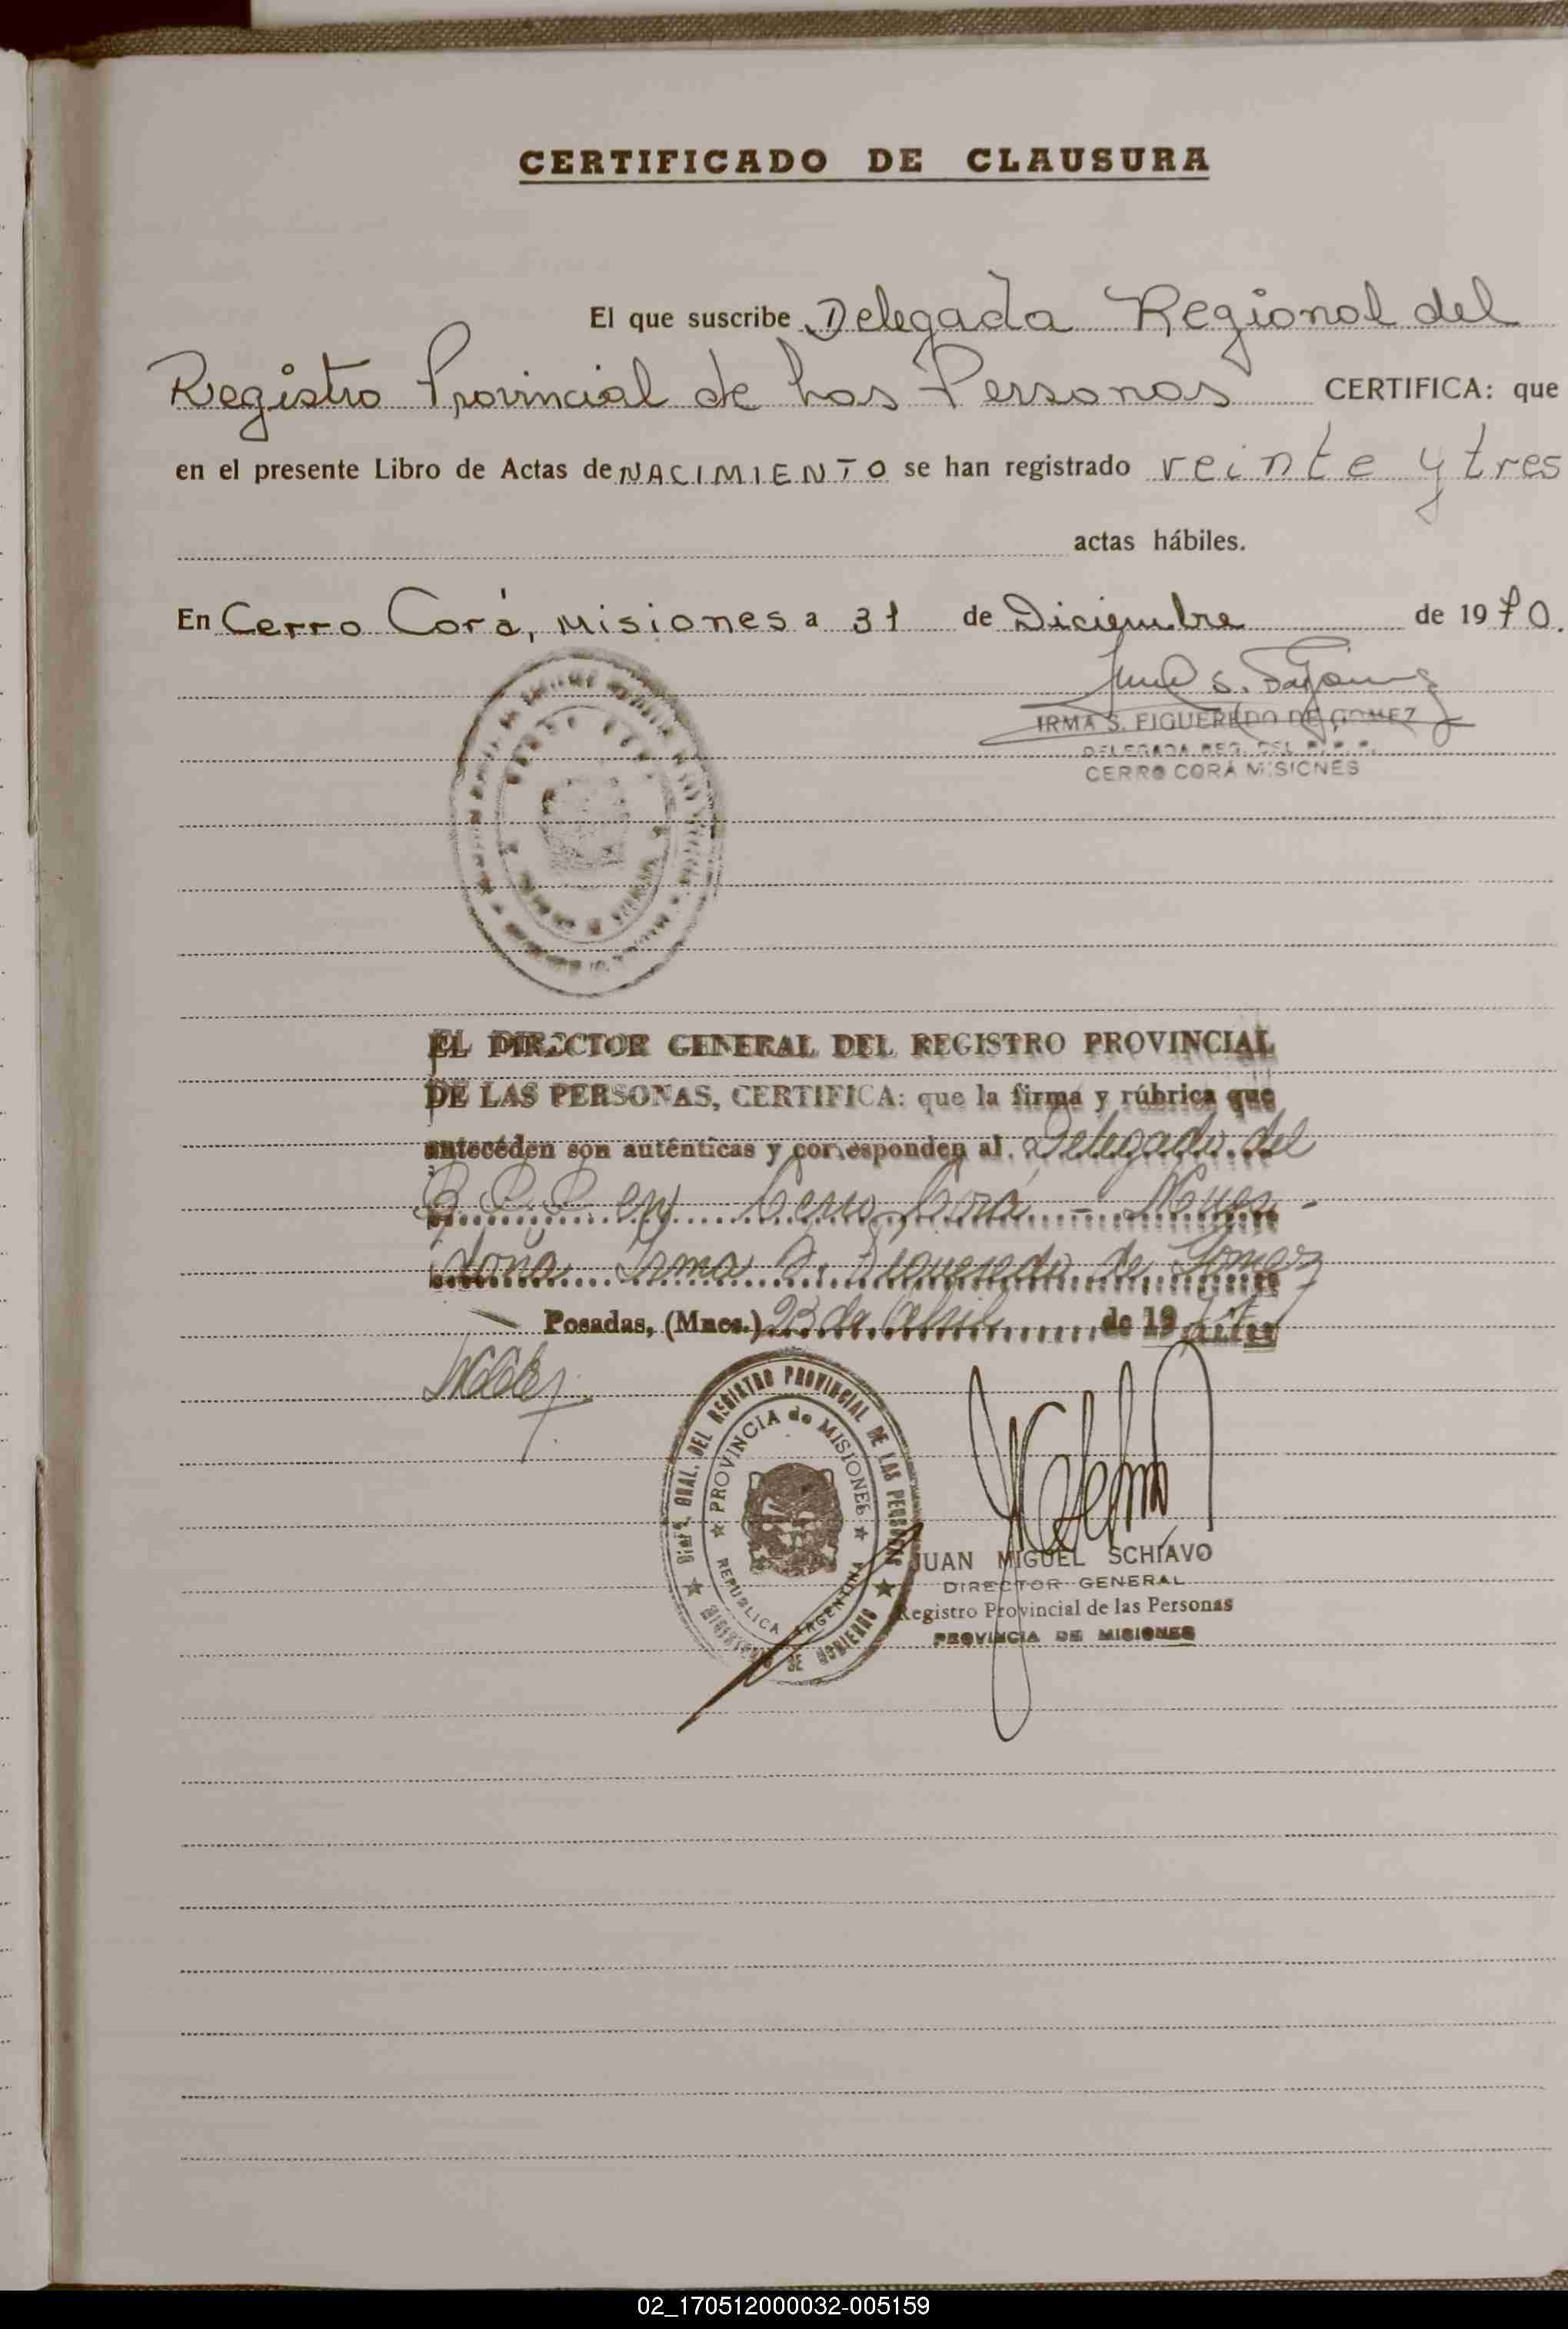 CERTIFICADO DE CLAUSURA
El que suscribe Delegada Regional del
Registro Provincial de Las Personas CERTIFICA: que
en el presente Libro de Actas de NACIMIENTO se han registrado veinte y tres
actas hábiles.
En Cerro Corá, Misiones a 31 de Diciembre de 1970.
IRMA S. FIGUEREDO DE GOMEZ
DELEGADA REG. DEL R. P. P.
CERRO CORÁ MISIONES
EL DIRECTOR GENERAL DEL REGISTRO PROVINCIAL
DE LAS PERSONAS, CERTIFICA: que la firma y rúbrica que
anteceden son auténticas y corresponden al Delegado del
R.P.P. en Cerro Corá - Mnes -
doña Irma S. Figueredo de Gomez
Posadas, (Mnes.) 23 de Abril de 19
DIREC. GRAL. DEL REGISTRO PROVINCIAL DE LAS PERSONAS
PROVINCIA de MISIONES
REPUBLICA ARGENTINA
MINISTERIO DE GOBIERNO
JUAN MIGUEL SCHIAVO
DIRECTOR GENERAL
Registro Provincial de las Personas
PROVINCIA DE MISIONES
02_170512000032-005159